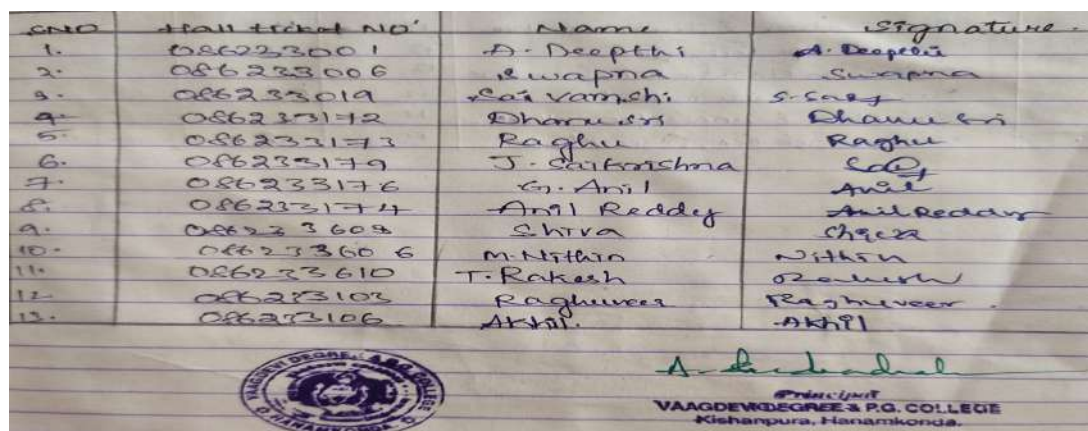 SNO Hall ticket NO' Name Signature.
1. 086223001 A. Deepthi A. Deepthi
2. 086233006 Swapna Swapna
3. 086233019 Sai vamshi S. Sai
4. 086233172 Dhanu sri Dhanu Sri
5. 086233173 Raghu Raghu
6. 086233179 J. Saikrishna Sai
7. 086233176 G. Anil Anil
8. 086233174 Anil Reddy Anil Reddy
9. Shiva
10. 086233606 M. Nithin Nithin
11. 086233610 T. Rakesh Rakesh
12 086233103 Raghuveer Raghuveer.
13. 086233106 Akhil. Akhil
VAAGDEVI DEGREE & P.G. COLLEGE
HANAMKONDA
Principal
VAAGDEVI DEGREE & P.G. COLLEGE
Kishanpura, Hanamkonda.